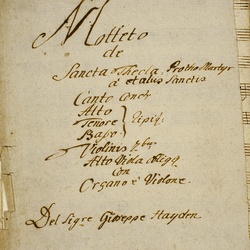 Motteto
de
Sancta Thecla Protho Martyr
a et aliis Sanctis
Canto Conc:
Alto
Tenore Ripi:
Basso
Violinis 2bus
Alto Viola obligg
con
Organo è Violone.
Del Sigre Gioseppe Hayden